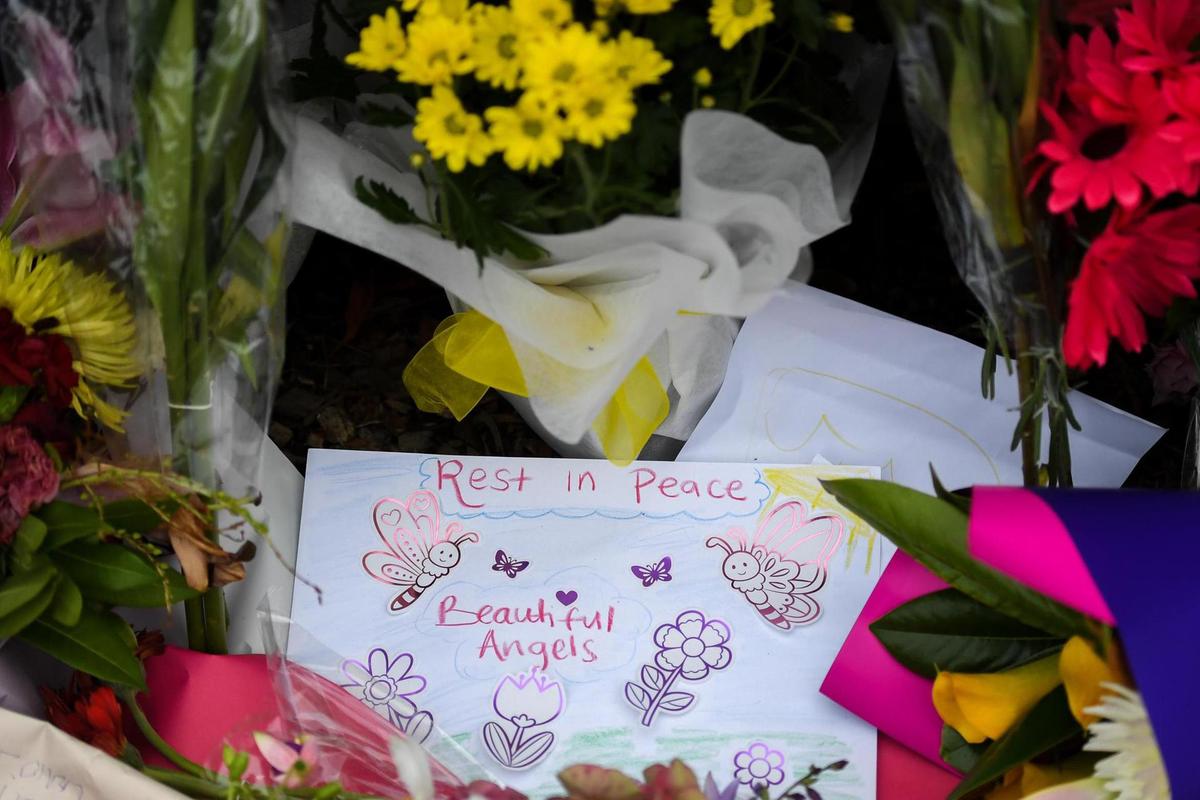 Rest in Peace
Beautiful
Angels